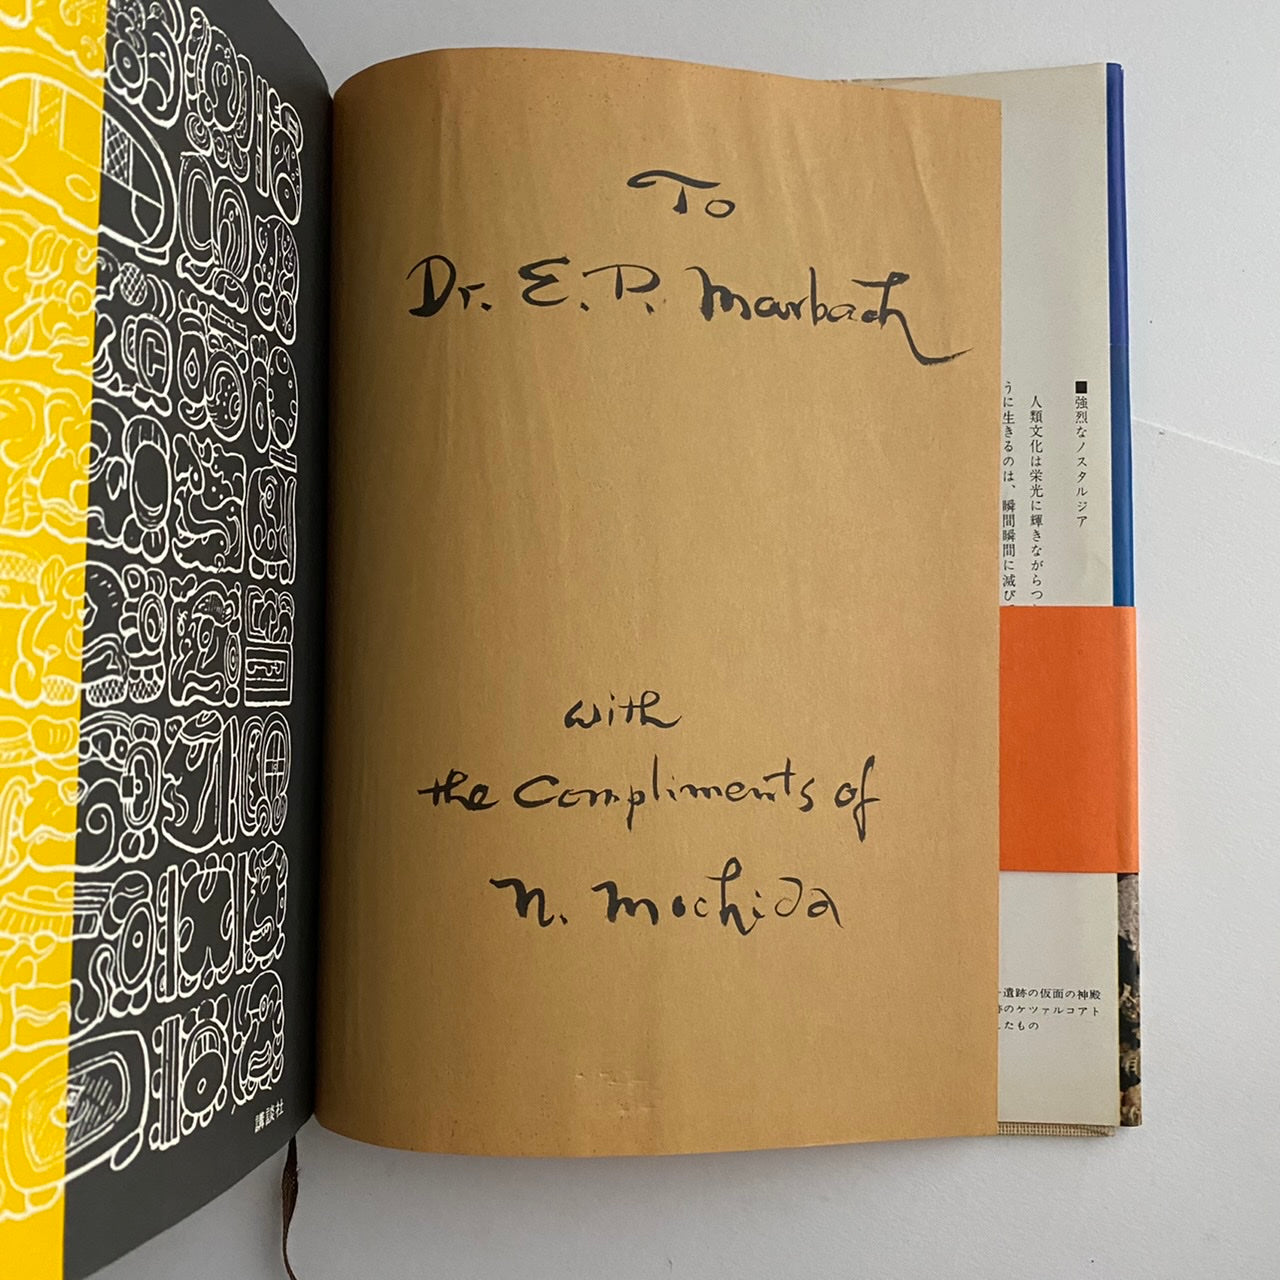 To
Dr. E. P. Marbach
with
the Compliments of
N. Mochida
講談社
■強烈なノスタルジア
人類文化は栄光に輝きながらつ
うに生きるのは、瞬間瞬間に滅び
遺跡の仮面の神殿
のケツァルコアト
たもの